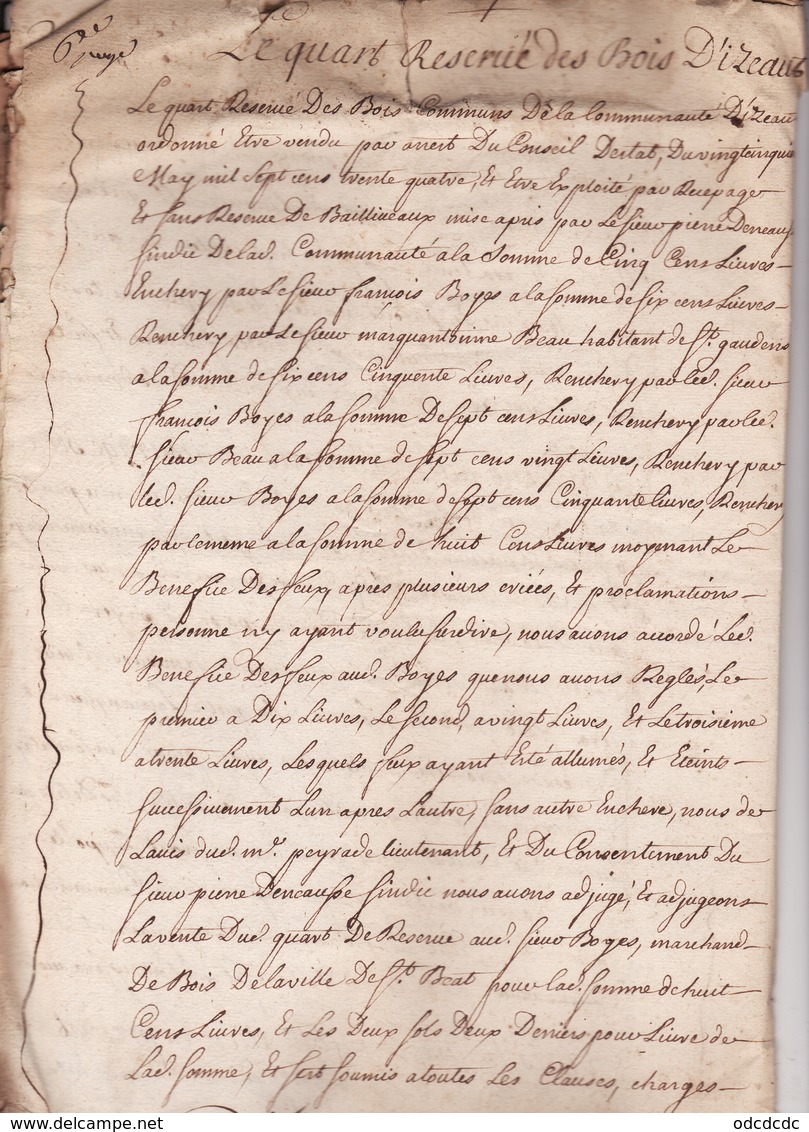 6.e page
Le quart Reservé des Bois D'izeaut
Le quart Reservé Des Bois Communs De la Communauté D'izeau
ordonné Etre vendu par arrest Du Conseil Destat, Du vingt cinquie
May mil sept cens trente quatre, Et Etre Exploité par Recepage
Et sans Reserve De Bailliveaux mise a pris par Le sieur pierre Dencausse
sindic De lad. Communauté a la somme de Cinq Cens Livres
Enchery par Le sieur francois Boyes a la somme de six cens Livres
Renchery par Le sieur marquantoinne Beau habitant de St. gaudens
a la somme de six cens Cinquente Livres, Renchery par led. sieur
francois Boyes a la somme De sept cens Livres, Renchery par led.
sieur Beau a la somme de sept cens vingt Livres, Renchery par
led. sieur Boyes a la somme de sept cens Cinquante livres, Renchery
par le meme a la somme de huit Cens Livres moyenant Le
Benefice Des feux, apres plusieurs criées, Et proclamations
personne n'y ayant voulu surdire, nous avons accordé Led.
Benefice Des feux aud. Boyes que nous avons Reglés, Le
premier a Dix Livres, Le second, a vingt Livres, Et Le troisieme
a trente Livres, Lesquels feux ayant Eté allumés, Et Eteints
successivement L'un apres L'autre, sans autre Enchere, nous de
L'avis dud. mr. peyrade lieutenant, Et Du Consentement Du
sieur pierre Dencausse sindic nous avons adjugé, Et adjugeons
La vente Dud. quart De Reserve aud. sieur Boyes, marchand
De Bois De la ville De St. Beat pour lad. somme de huit
Cens Livres, Et Les Deux sols Deux Deniers pour Livre de
Lad. somme, Et sera soumis a toutes Les Clauses, charges
odcdcdc